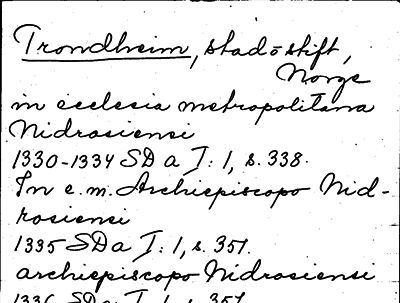 Trondheim, stad o stift,
Norge
in ecclesia metropolitana
Nidrosiensi
1330-1334 SD a I: 1, s. 338.
In e. m. Archiepiscopo Nid-
rosiensi
1335 SD a I: 1, s. 351.
archiepiscopo Nidrosiensi
1336 SD a I: 1, s. 351